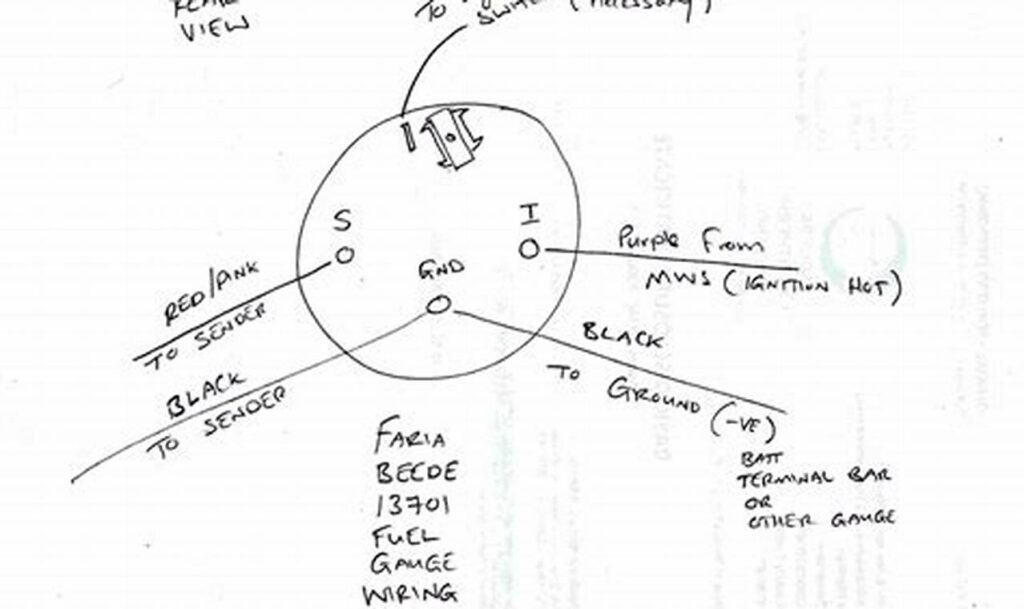 VIEW
TO
S
I
GND
RED/PINK
TO SENDER
BLACK
TO SENDER
Purple From
MWS (IGNITION HOT)
BLACK
TO GROUND (-VE)
BATT
TERMINAL BAR
OR
OTHER GAUGE
FARIA
BEEDE
13701
FUEL
GAUGE
WIRING